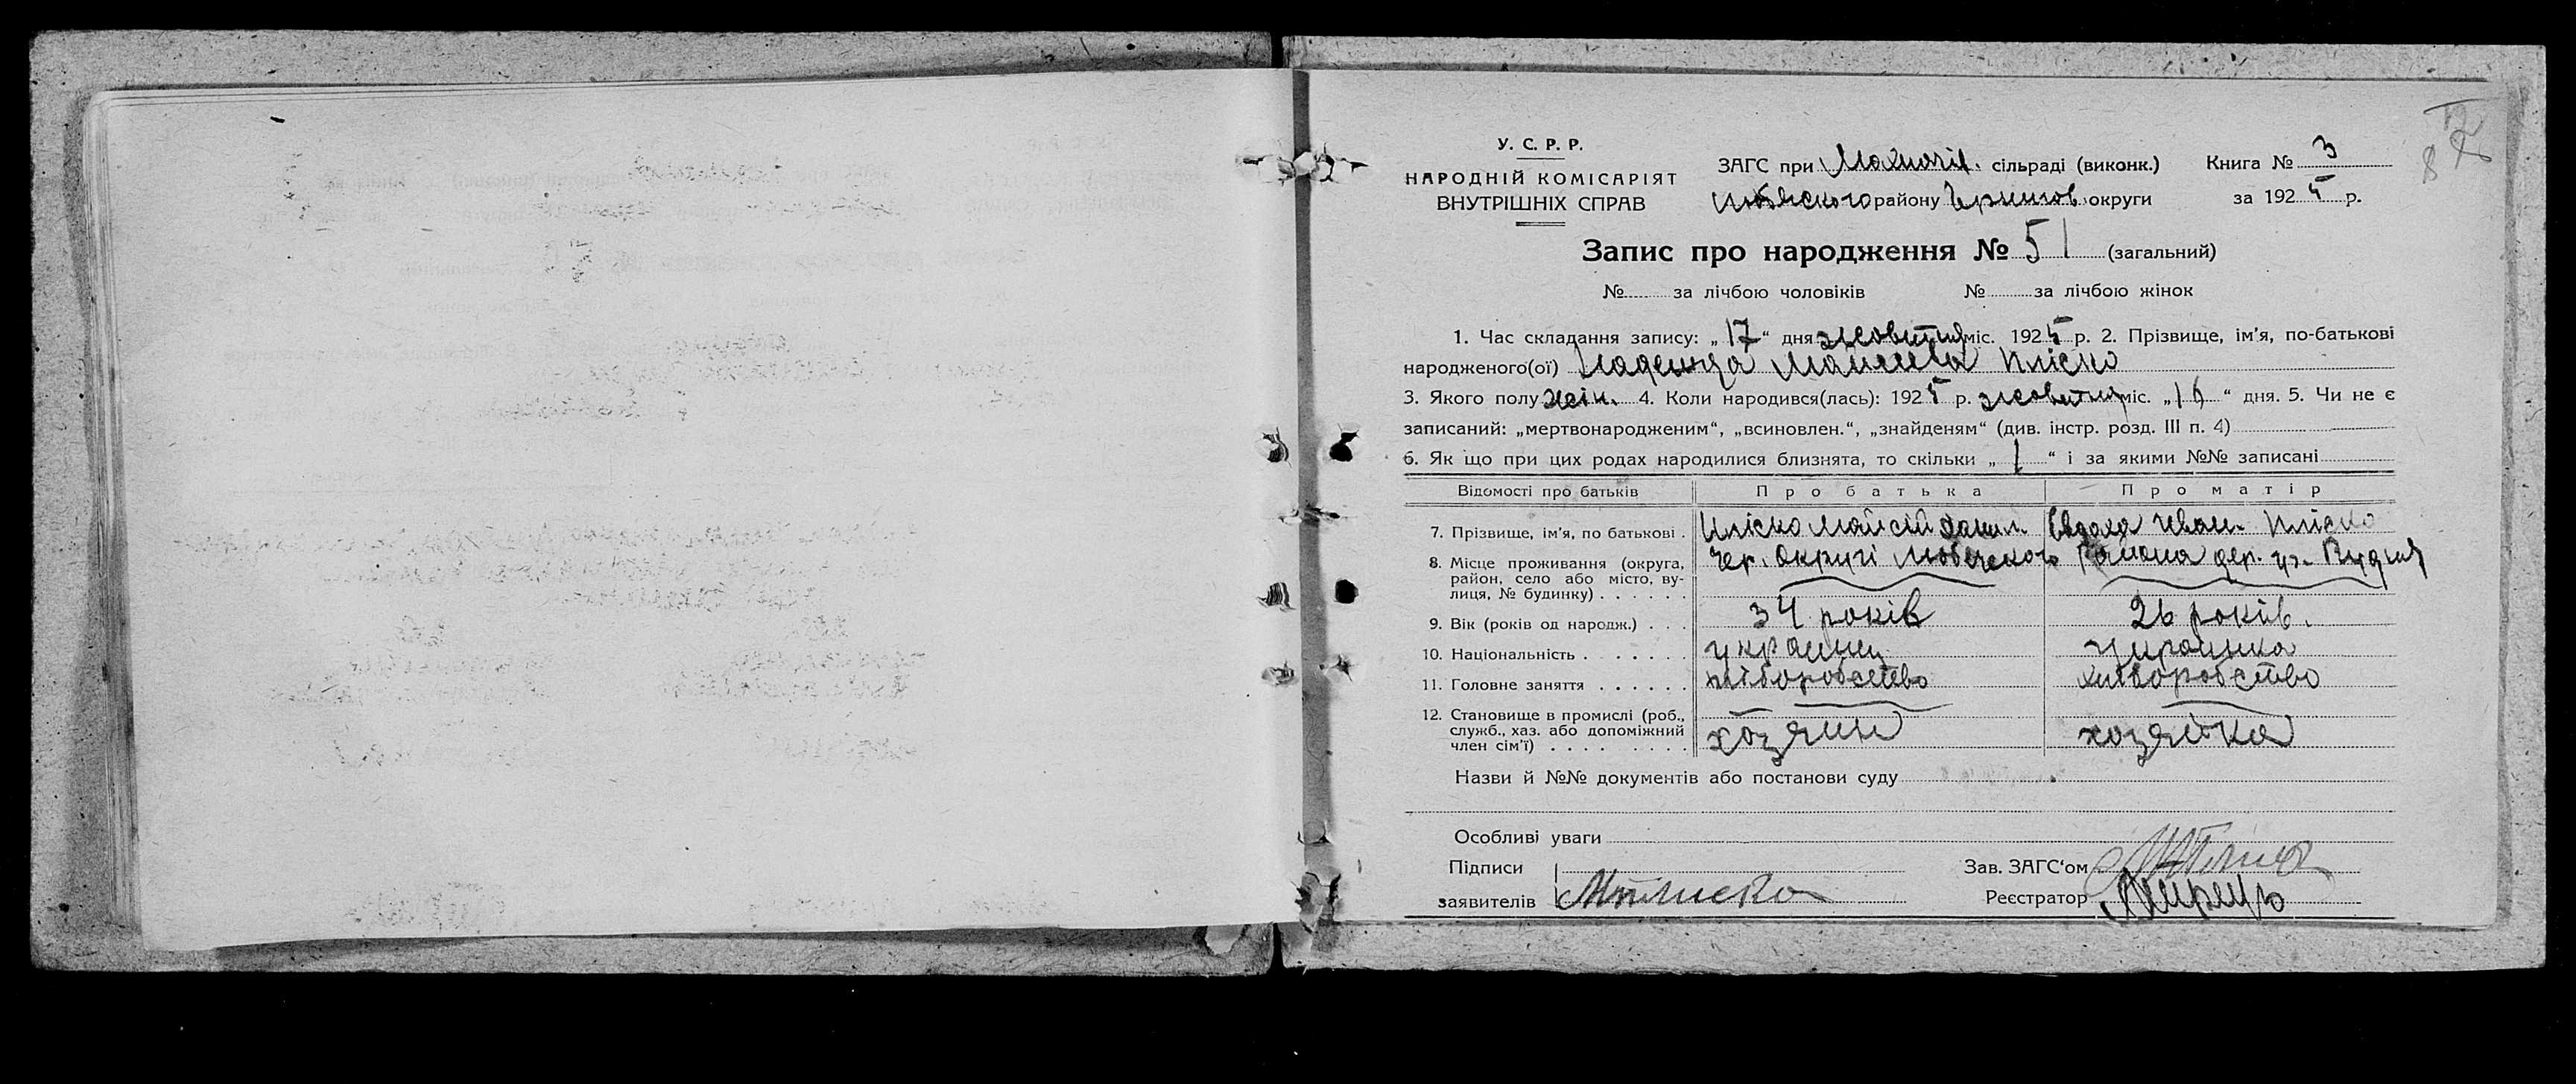 У. С. Р. Р.
НАРОДНІЙ КОМІСАРІЯТ
ВНУТРІШНІХ СПРАВ
ЗАГС при сільраді (виконк.)
району Чернигов. округи
Книга № 3
за 1925 р.
Запис про народження № 51 (загальний)
№ за лічбою чоловіків № за лічбою жінок
1. Час складання запису: „17“ дня жовтня міс. 1925 р. 2. Прізвище, ім'я, по-батькові
народженого(ої) Пліско
3. Якого полу жін. 4. Коли народився(лась): 1925 р. жовтня міс. „16“ дня. 5. Чи не є
записаний: „мертвонародженим“, „всиновлен.“, „знайденям“ (див. інстр. розд. III п. 4)
6. Як що при цих родах народилися близнята, то скільки „1“ і за якими №№ записані
Відомості про батьків Про батька Про матір
7. Прізвище, ім'я, по батькові . Пліско Мойсій Данил. Евдоха Иван. Пліско
8. Місце проживання (округа, район, село або місто, вулиця, № будинку) . . . . . . Чер. Округі Любечского Района дер. Рудня
9. Вік (років од народж.) . . . 34 років 26 років.
10. Національність . . . . . . украинец украинка
11. Головне заняття . . . . . . хліборобство хліборобство
12. Становище в промислі (роб., служб., хаз. або допоміжний член сім'ї) . . . . . . . . . хозяин хозяйка
Назви й №№ документів або постанови суду
Особливі уваги
Підписи
заявителів МПлиско
Зав. ЗАГС'ом
Реєстратор